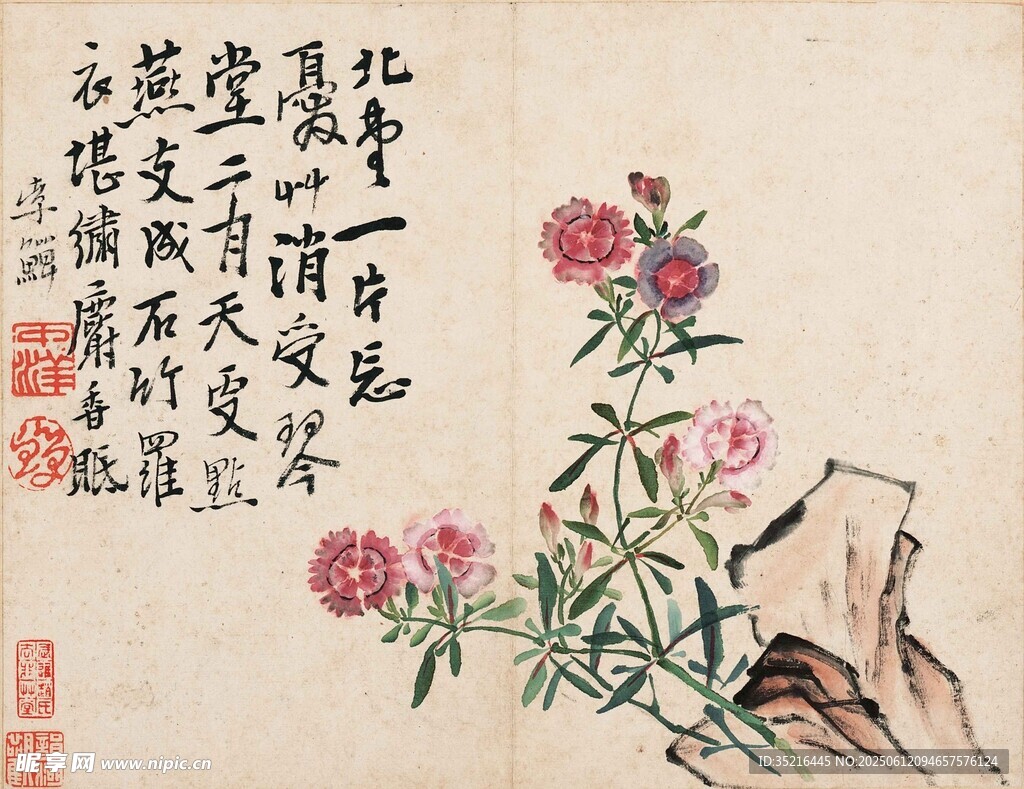 北堂一片忘
憂艸消受琴
堂二月天更點
燕支成石竹羅
衣堪繡麝香眠
李鱓
昵享网 www.nipic.cn
ID:35216445 NO:20250612094657576124